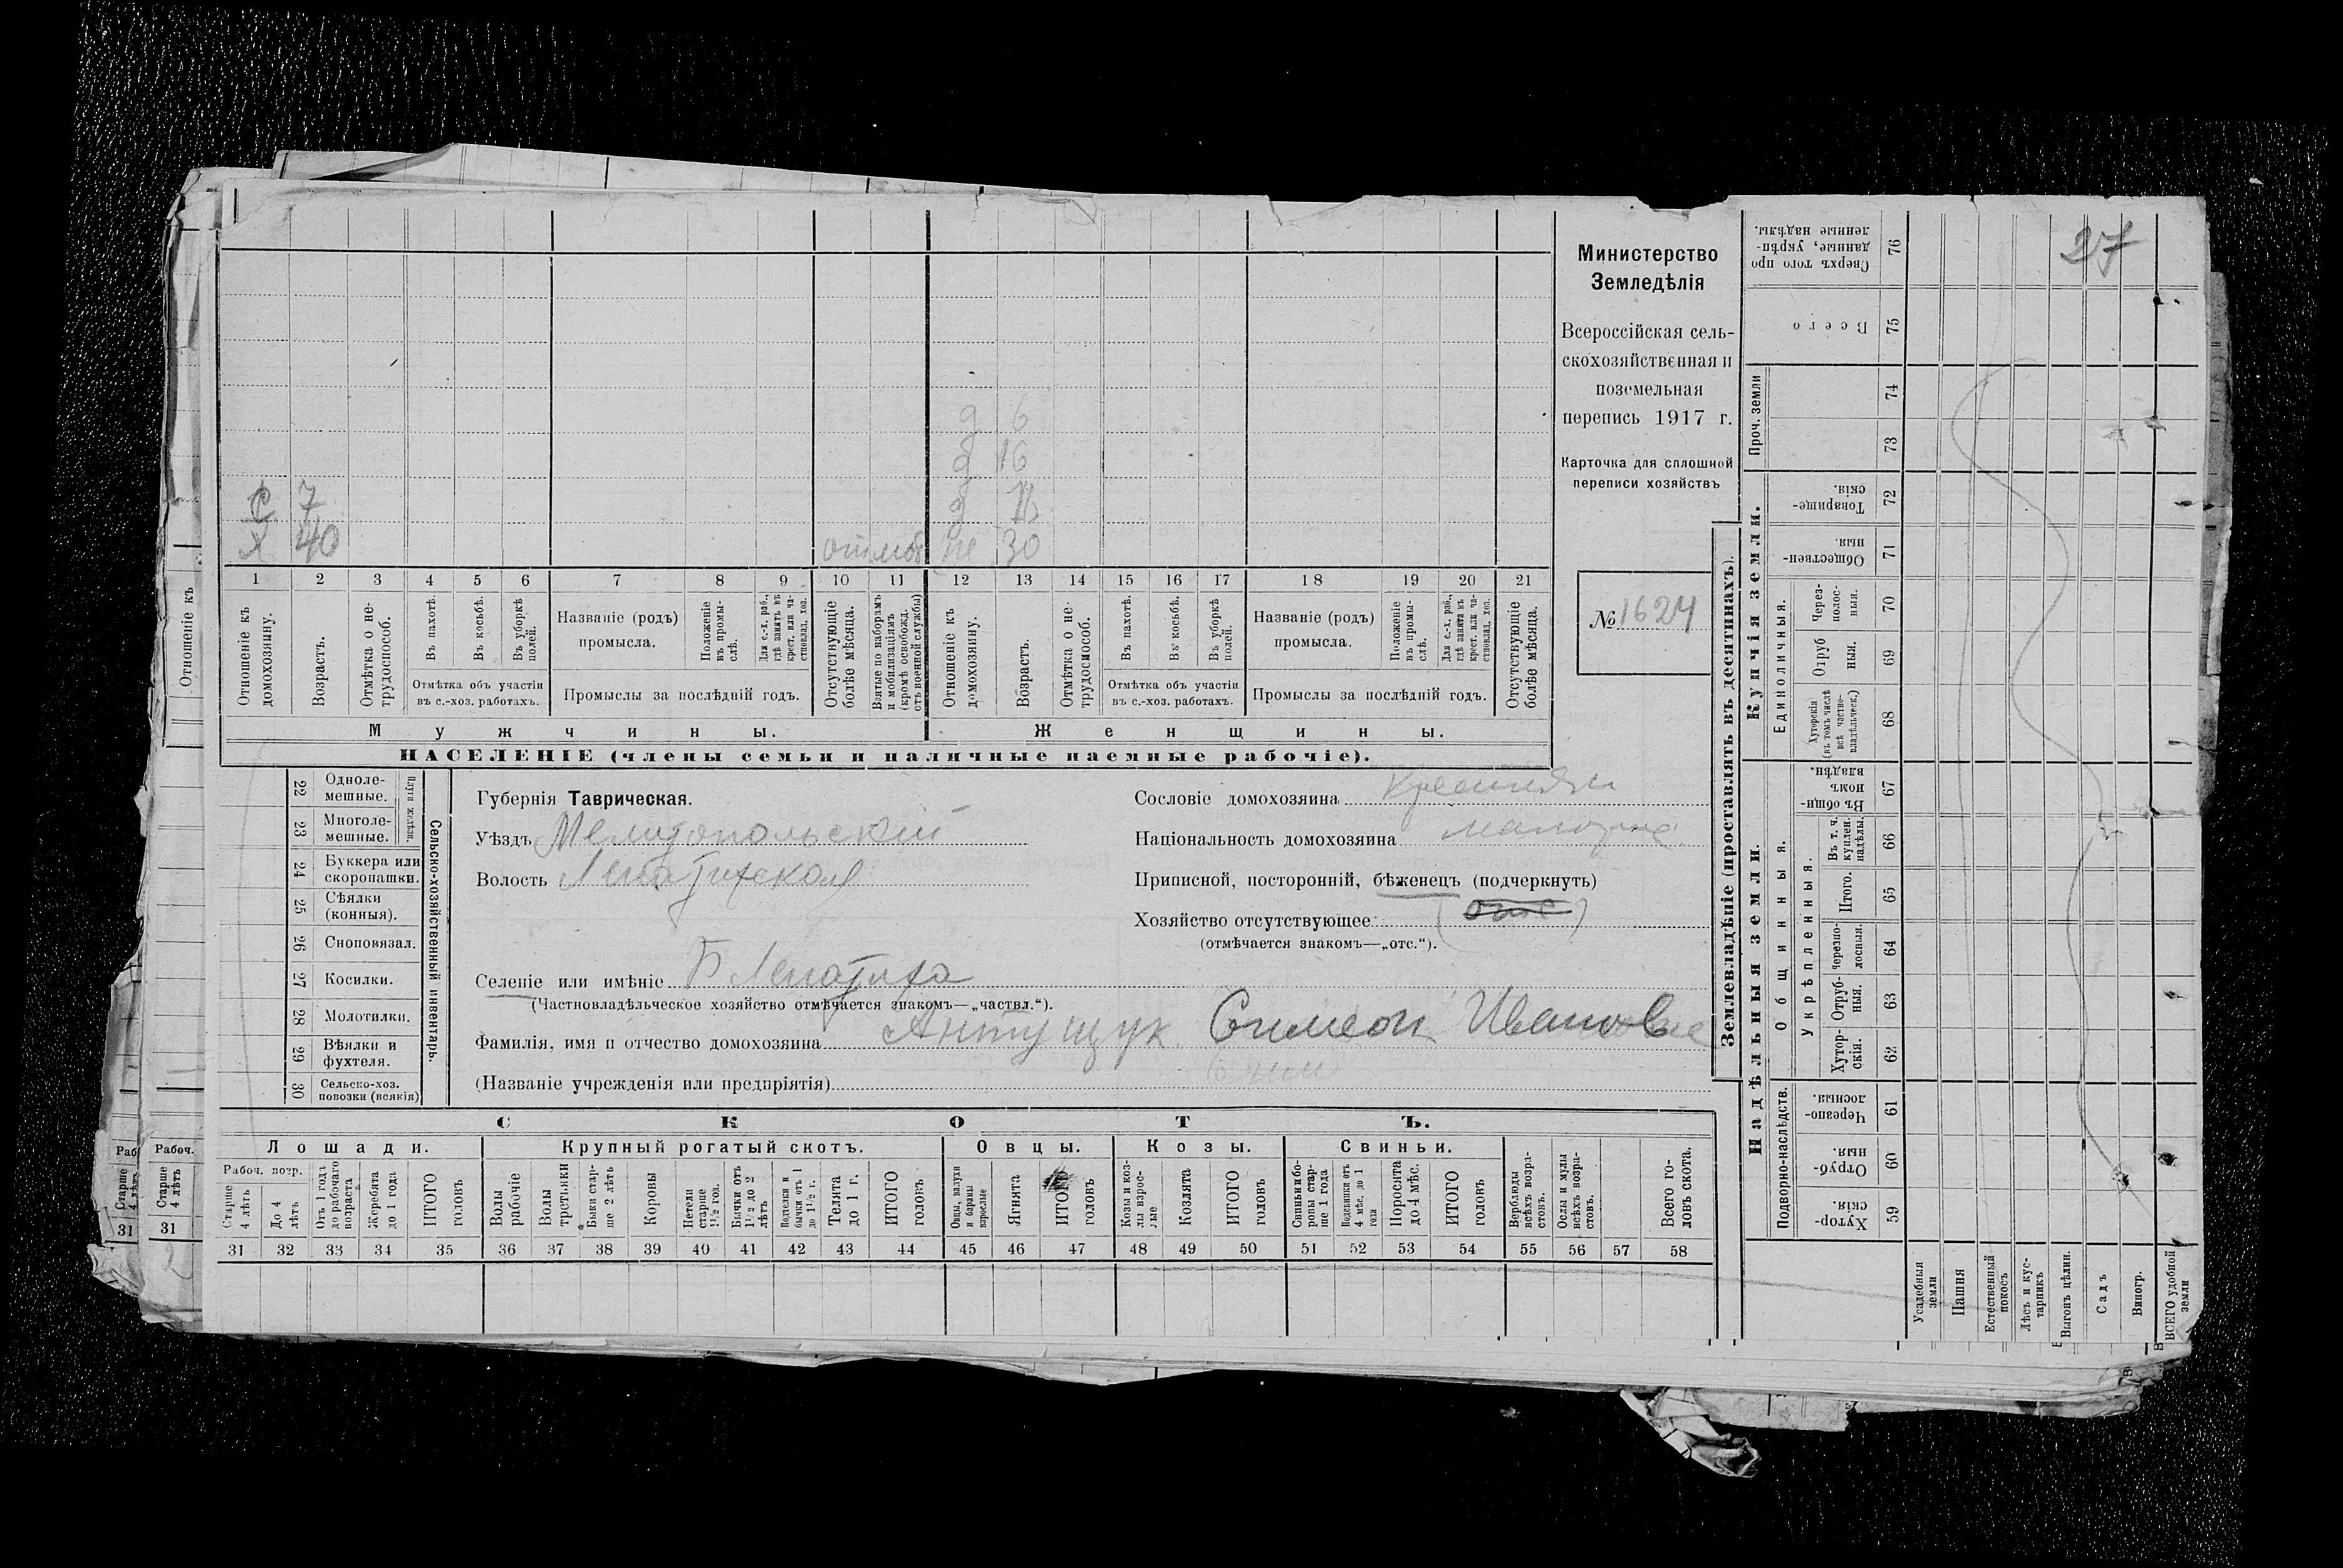 27
Министерство
Земледѣлія
Всероссійская сель-
скохозяйственная и
поземельная
перепись 1917 г.
Карточка для сплошной
переписи хозяйствъ
№ 1624
д 6
д 16
с 7 д
х 40 30
1 2 3 4 5 6 7 8 9 10 11 12 13 14 15 16 17 18 19 20 21
Отношеніе къ домохозяину.
Возрастъ.
Отмѣтка о не-трудоспособ.
Въ пахотѣ.
Въ косьбѣ.
Въ уборкѣ полей.
Отмѣтка объ участіи
въ с.-хоз. работахъ.
Названіе (родъ)
промысла.
Положеніе въ промы-слѣ.
Для с.-х. раб., гдѣ занятъ въ крест. или ча-стновлад. хоз.
Промыслы за послѣдній годъ.
Отсутствующіе болѣе мѣсяца.
Взятые по наборамъ и мобилизаціямъ (кромѣ освобожд. отъ военной службы)
Отношеніе къ домохозяину.
Возрастъ.
Отмѣтка о не-трудоспособ.
Въ пахотѣ.
Въ косьбѣ.
Въ уборкѣ полей.
Отмѣтка объ участіи
въ с.-хоз. работахъ.
Названіе (родъ)
промысла.
Положеніе въ промы-слѣ.
Для с.-х. раб., гдѣ занята въ крест. или ча-стновлад. хоз.
Промыслы за послѣдній годъ.
Отсутствующіе болѣе мѣсяца.
Мужчины. Женщины.
НАСЕЛЕНІЕ (члены семьи и наличные наемные рабочіе).
22 Одноле-мешные.
23 Многоле-мешные.
Плуги желѣзн.
24 Буккера или скоропашки.
25 Сѣялки (конныя).
26 Сноповязал.
27 Косилки.
28 Молотилки.
29 Вѣялки и фухтеля.
30 Сельско-хоз. повозки (всякія)
Сельско-хозяйственный инвентарь.
Губернія Таврическая.
Уѣздъ Мелитопольскій
Волость Лепатихская
Селеніе или имѣніе Б Лепатиха
(Частновладѣльческое хозяйство отмѣчается знакомъ—„частвл.“).
Фамилія, имя и отчество домохозяина Антущук Симеон Иванов
(Названіе учрежденія или предпріятія)
Сословіе домохозяина Крестьян
Національность домохозяина
Приписной, посторонній, бѣженецъ (подчеркнуть)
Хозяйство отсутствующее (отс)
(отмѣчается знакомъ—„отс.“).
СКОТЪ.
Лошади. Крупный рогатый скотъ. Овцы. Козы. Свиньи.
Рабоч. возр.
Старше 4 лѣтъ
До 4 лѣтъ
Отъ 1 года до рабочаго возраста
Жеребята до 1 года
ИТОГО головъ
Волы рабочіе
Волы третьяки
Быки стар-ше 2 лѣтъ
Коровы
Нетели старше 1½ год.
Бычки отъ 1½ до 2 лѣтъ
Подтелки и бычки отъ 1 до 1½ г.
Телята до 1 г.
ИТОГО головъ
Овцы, валухи и бараны взрослые
Ягнята
ИТОГО головъ
Козы и коз-лы взрос-лые
Козлята
ИТОГО головъ
Свиньи и бо-ровы стар-ше 1 года
Подсвинки отъ 4 мѣс. до 1 года
Поросята до 4 мѣс.
ИТОГО головъ
Верблюды всѣхъ возра-стовъ.
Ослы и мулы всѣхъ возра-стовъ.
Всего го-ловъ скота.
31 32 33 34 35 36 37 38 39 40 41 42 43 44 45 46 47 48 49 50 51 52 53 54 55 56 57 58
Землевладѣніе (проставлять въ десятинахъ).
Надѣльныя земли.
Купчія земли.
Проч. земли
Сверхъ того про данные, укрѣп-ленные надѣлы. 76
Всего 75
74
73
Товарище-скія. 72
Обществен-ныя. 71
Единоличныя.
Через-полос-ныя. 70
Отруб ныя. 69
Хуторскія (въ томъ числѣ всѣ частно-владѣльческ.) 68
Общинныя.
Въ общи-номъ владѣн. 67
Укрѣпленныя.
Въ т. ч. куплен. надѣлы. 66
Итого. 65
Черезпо-лосныя. 64
Отруб-ныя. 63
Хутор-скія. 62
Подворно-наслѣдств.
Черезпо-лосныя. 61
Отруб-ныя. 60
Хутор-скія. 59
Усадебныя земли
Пашня
Естественный покосъ
Лѣсъ и кус-тарникъ
Выгонъ цѣлин.
Садъ
Виногр.
ВСЕГО удобной земли
Отношеніе къ
Раб
Рабоч.
Старше 4 лѣтъ
Старше 4 лѣтъ
31
31
2